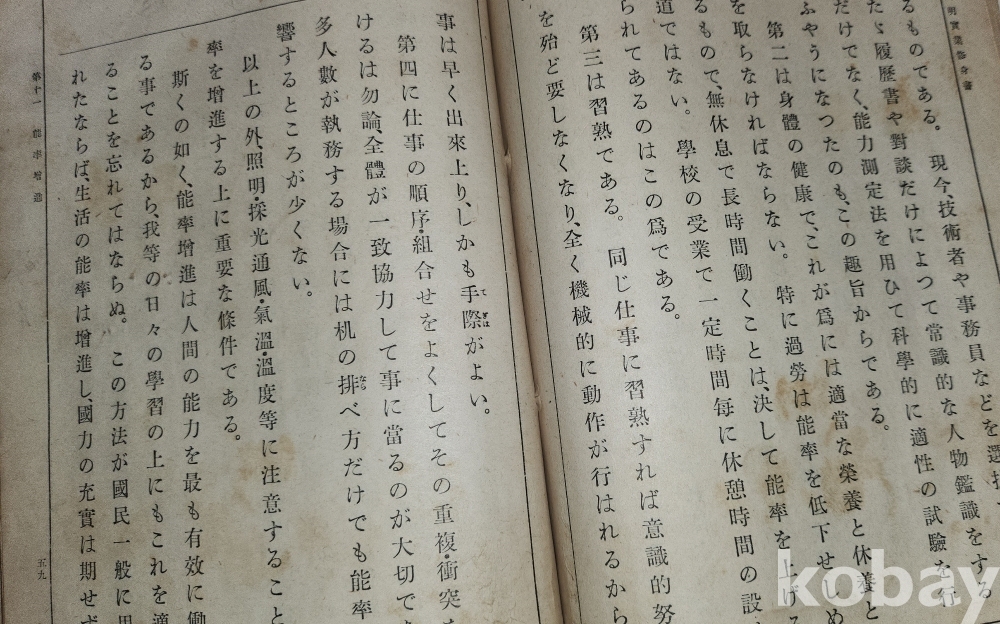 明實業修身書
などを選擇
るものである。現今、技術者や事務員
たゞ履歷書や對談だけによつて常識的な人物鑑識をする
だけでなく、能力測定法を用ひて科學的に適性の試驗を行
ふやうになつたのも、この趣旨からである。
第二は身體の健康で、これが爲には適當な榮養と休養と
を取らなければならない。特に過勞は能率を低下せしめ
るもので、無休息で長時間働くことは、決して能率を上げる
道ではない。學校の受業で一定時間每に休憩時間の設
られてあるのはこの爲である。
第三は習熟である。同じ仕事に習熟すれば意識的努
を殆ど要しなくなり、全く機械的に動作が行はれるから
事は早く出來上り、しかも手際がよい。
第四に仕事の順序・組合せをよくしてその重複・衝突
けるは勿論、全體が一致協力して事に當るのが大切で
多人數が執務する場合には机の排べ方だけでも能率
響するところが少くない。
以上の外、照明・採光・通風・氣溫・溫度等に注意すること
率を增進する上に重要な條件である。
斯くの如く、能率增進は人間の能力を最も有效に働
る事であるから、我等の日々の學習の上にもこれを適
ることを忘れてはならぬ。この方法が國民一般に用
れたならば、生活の能率は增進し、國力の充實は期せず
第十一 能率增進
五九
kobay